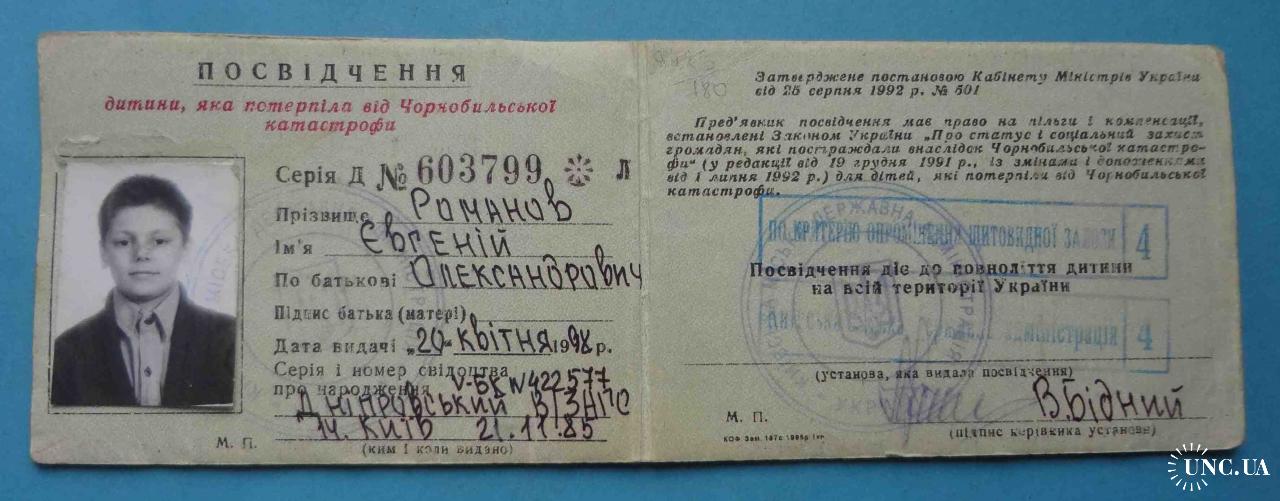 ПОСВІДЧЕННЯ
дитини, яка потерпіла від Чорнобильської
катастрофи
Серія Д № 603799 Л
Прізвище Романов
Ім'я Євгеній
По батькові Олександрович
Підпис батька (матері)
Дата видачі „20" квітня 1998 р.
Серія і номер свідоцтва
про народження V-БК N 422577
Дніпровський ВІЗАГС
м. Київ 21.11.85
М. П. (ким і коли видано)
180
Затверджене постановою Кабінету Міністрів України
від 25 серпня 1992 р. № 501
Пред'явник посвідчення має право на пільги і компенсації,
встановлені Законом України „Про статус і соціальний захист
громадян, які постраждали внаслідок Чорнобильської катастро-
фи" (у редакції від 19 грудня 1991 р., із змінами і доповненнями
від 1 липня 1992 р.) для дітей, які потерпіли від Чорнобильської
катастрофи.
ПО КРИТЕРІЮ ОПРОМІНЕННЯ ЩИТОВИДНОЇ ЗАЛОЗИ 4
Посвідчення діє до повноліття дитини
на всій території України
Київська міська державна адміністрація 4
(установа, яка видала посвідчення)
В.Бідний
М. П.
(підпис керівника установи)
UNC.UA